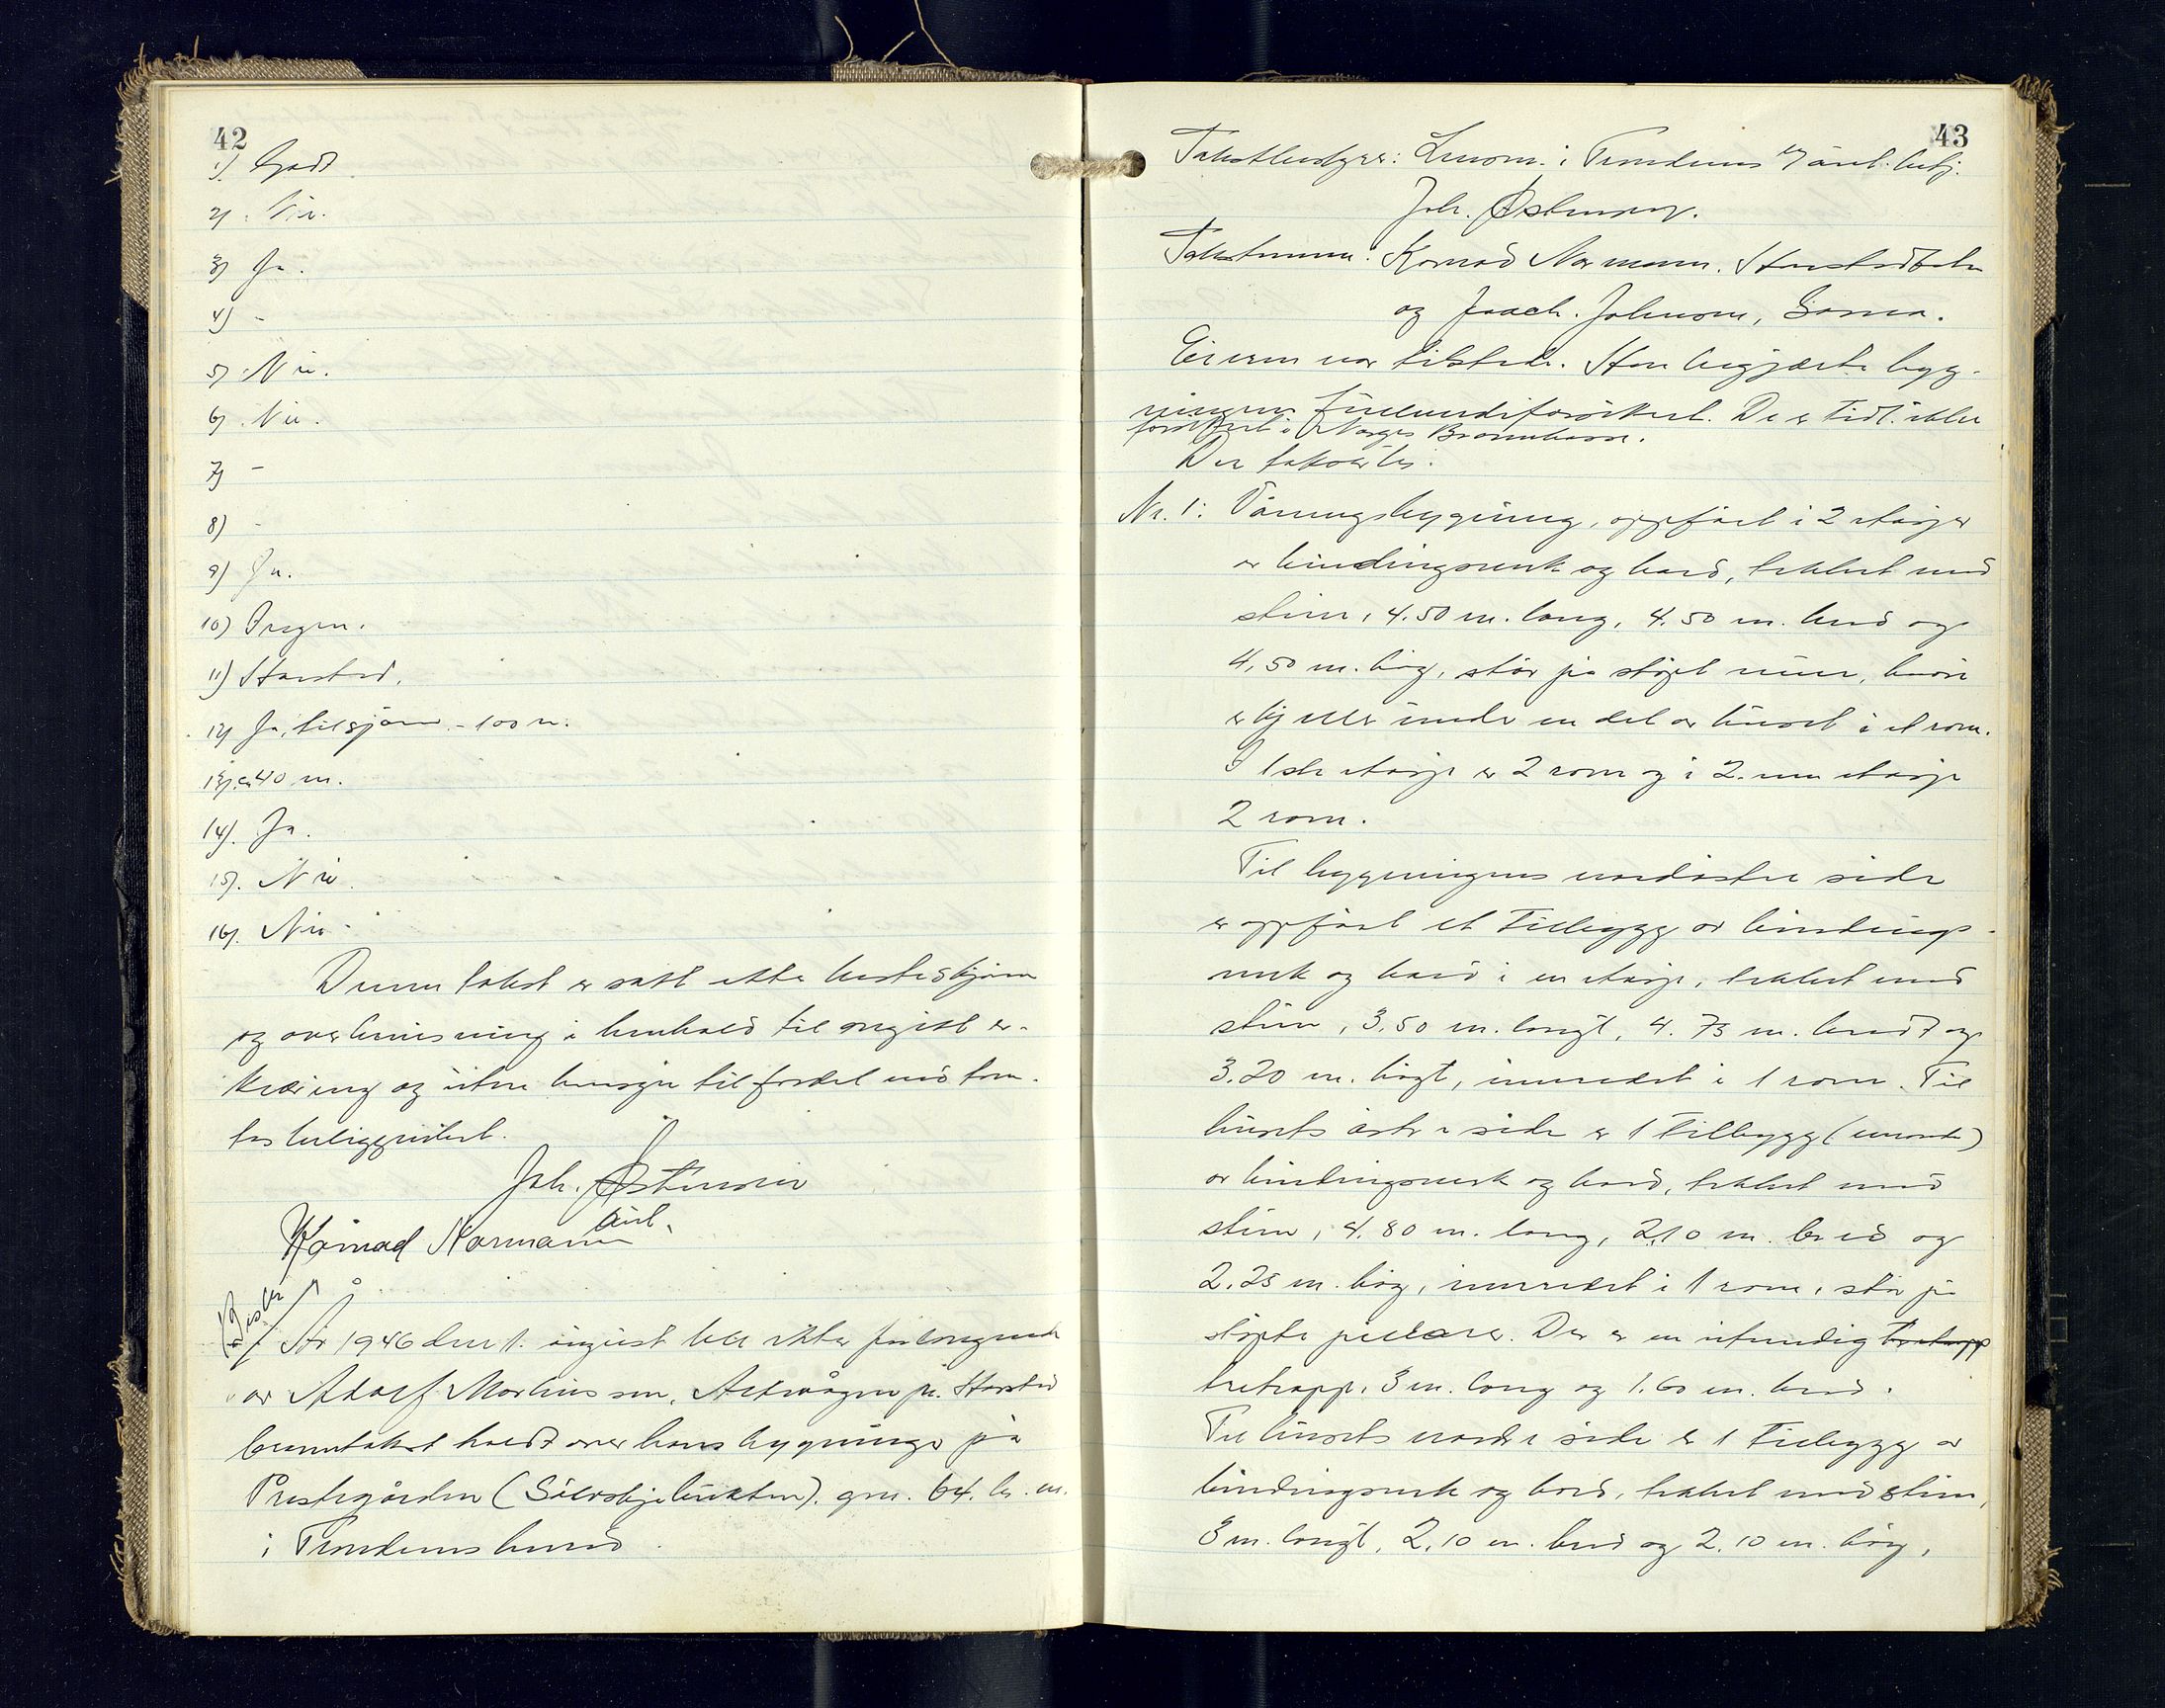 42
1) Godt
2) Nei.
3) Ja.
4) -
5) Nei.
6) Nei.
7) -
8) -
9) Ja.
10) Ingen.
11) Harstad.
12) Ja, til sjøen - 100 m.
13) ca 40 m.
14). Ja.
15). Nei
16). Nei.
Denne takst er satt etter beste skjønn
og overbevisning i henhold til avgitt er-
klæring og uten hensyn til fordel ved tom-
tas beliggenhet.
Joh. Østensen
Konrad Normann
År 1946 den 1. august ble etter forlangende
av Adolf Martinussen, pr. Harstad
branntakst holdt over hans bygninger på
Prestegården gnr. 64. br. nr.
i Trondenes herred.
43
Takstbestyrer: Lensm. i Trondenes v/ aut. betj.
Joh. Østensen.
Takstmenn: Konrad Normann. Harstadbotn
og Joach. Johnsen, Gansås.
Eieren var tilstede. Han begjærte byg-
ningen forsikret. De er tidl. ikke
forsikret i Norges Brannkasse.
Der takseres:
Nr. 1: Våningsbygning, oppført i 2 etasjer
av bindingsverk og bord, tekket med
stein, 4.50 m. lang, 4.50 m. bred og
4,50 m. høg, står på støpt mur, hvori
er kjeller under en del av huset i et rom.
I 1ste etasje er 2 rom og i 2.nen etasje
2 rom.
Til bygningens nordøstre side
er oppført et tilbygg av bindings-
verk og bord i en etasje, tekket med
stein, 3.50 m. langt, 4.75 m. bredt og
3.20 m. høgt, innredet i 1 rom. Til
husets østre side er 1 tilbygg (veranda)
av bindingsverk og bord, tekket med
stein, 4.80 m. lang, 2.10 m. bred og
2.25 m. høg, innredet i 1 rom, står på
støpte pillarer. Der er en utvendig
tretrapp, 3 m. lang og 1.60 m. bred.
Til husets nordre side er 1 tilbygg av
bindingsverk og bord, tekket med stein,
3 m. langt, 2,10 m. bred og 2,10 m. høg,